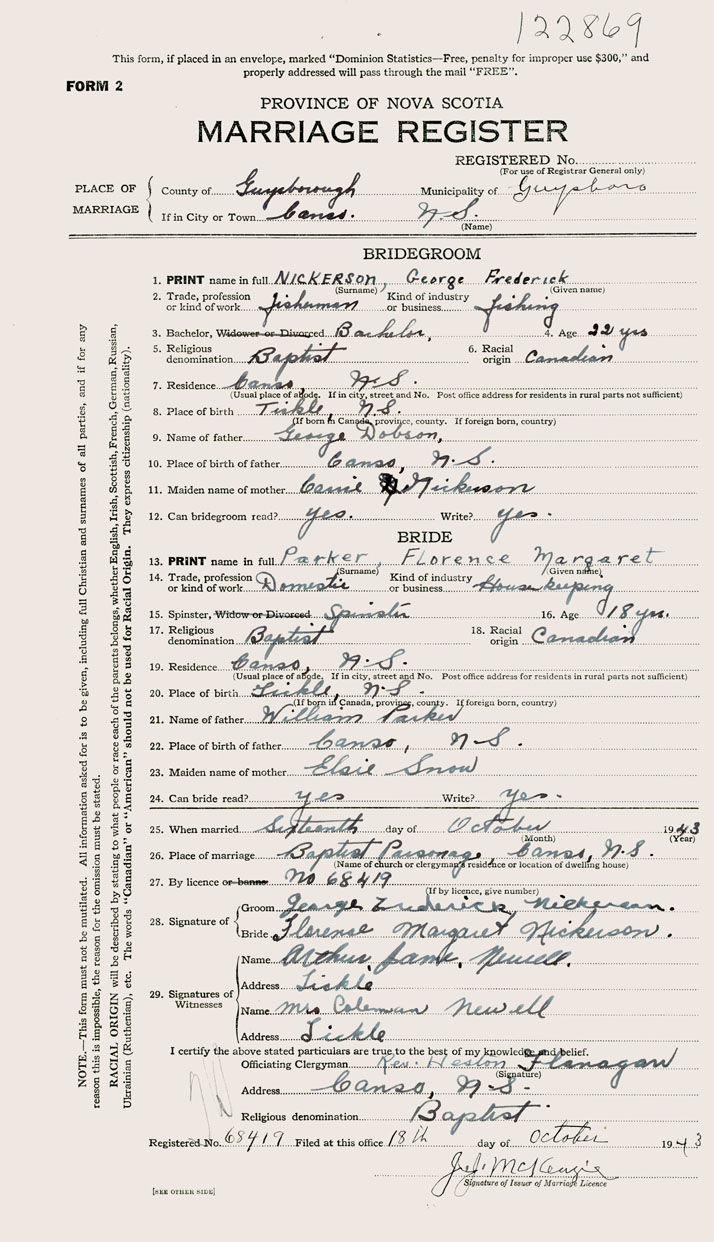 122869
This form, if placed in an envelope, marked "Dominion Statistics—Free, penalty for improper use $300," and
properly addressed will pass through the mail "FREE".
FORM 2
PROVINCE OF NOVA SCOTIA
MARRIAGE REGISTER
REGISTERED No.
(For use of Registrar General only)
PLACE OF MARRIAGE
County of Guysborough Municipality of Guysboro
If in City or Town Canso. N.S.
(Name)
BRIDEGROOM
1. PRINT name in full NICKERSON, George Frederick
(Surname) (Given name)
2. Trade, profession or kind of work fisherman Kind of industry or business fishing
3. Bachelor, Widower or Divorced Bachelor, 4. Age 22 yrs
5. Religious denomination Baptist 6. Racial origin Canadian
7. Residence Canso, N.S.
(Usual place of abode. If in city, street and No. Post office address for residents in rural parts not sufficient)
8. Place of birth Tickle, N.S.
(If born in Canada, province, county. If foreign born, country)
9. Name of father George Dobson,
10. Place of birth of father Canso, N.S.
11. Maiden name of mother Carrie Nickerson
12. Can bridegroom read? yes. Write? yes.
BRIDE
13. PRINT name in full Parker, Florence Margaret
(Surname) (Given name)
14. Trade, profession or kind of work Domestic Kind of industry or business Housekeeping
15. Spinster, Widow or Divorced Spinster 16. Age 18 yrs.
17. Religious denomination Baptist 18. Racial origin Canadian
19. Residence Canso, N.S.
(Usual place of abode. If in city, street and No. Post office address for residents in rural parts not sufficient)
20. Place of birth Tickle, N.S.
(If born in Canada, province, county. If foreign born, country)
21. Name of father William Parker
22. Place of birth of father Canso, N.S.
23. Maiden name of mother Elsie Snow
24. Can bride read? yes Write? yes.
25. When married Sixteenth day of October 1943
(Month) (Year)
26. Place of marriage Baptist Parsonage, Canso, N.S.
(Name of church or clergyman's residence or location of dwelling house)
27. By licence or banns No 68419
(If by licence, give number)
28. Signature of
Groom George Frederick Nickerson.
Bride Florence Margaret Nickerson.
29. Signatures of Witnesses
Name Arthur James Newell.
Address Tickle
Name Mrs Coleman Newell
Address Tickle
I certify the above stated particulars are true to the best of my knowledge and belief.
Officiating Clergyman Rev. Flanagan
(Signature)
Address Canso, N.S.
Religious denomination Baptist
Registered No. 68419 Filed at this office 18th day of October 1943
J.J. McKenzie
Signature of Issuer of Marriage Licence
[SEE OTHER SIDE]
NOTE.—This form must not be mutilated. All information asked for is to be given, including full Christian and surnames of all parties, and if for any
reason this is impossible, the reason for the omission must be stated.
RACIAL ORIGIN will be described by stating to what people or race each of the parents belongs, whether English, Irish, Scottish, French, German, Russian,
Ukrainian (Ruthenian), etc. The words "Canadian" or "American" should not be used for Racial Origin. They express citizenship (nationality).